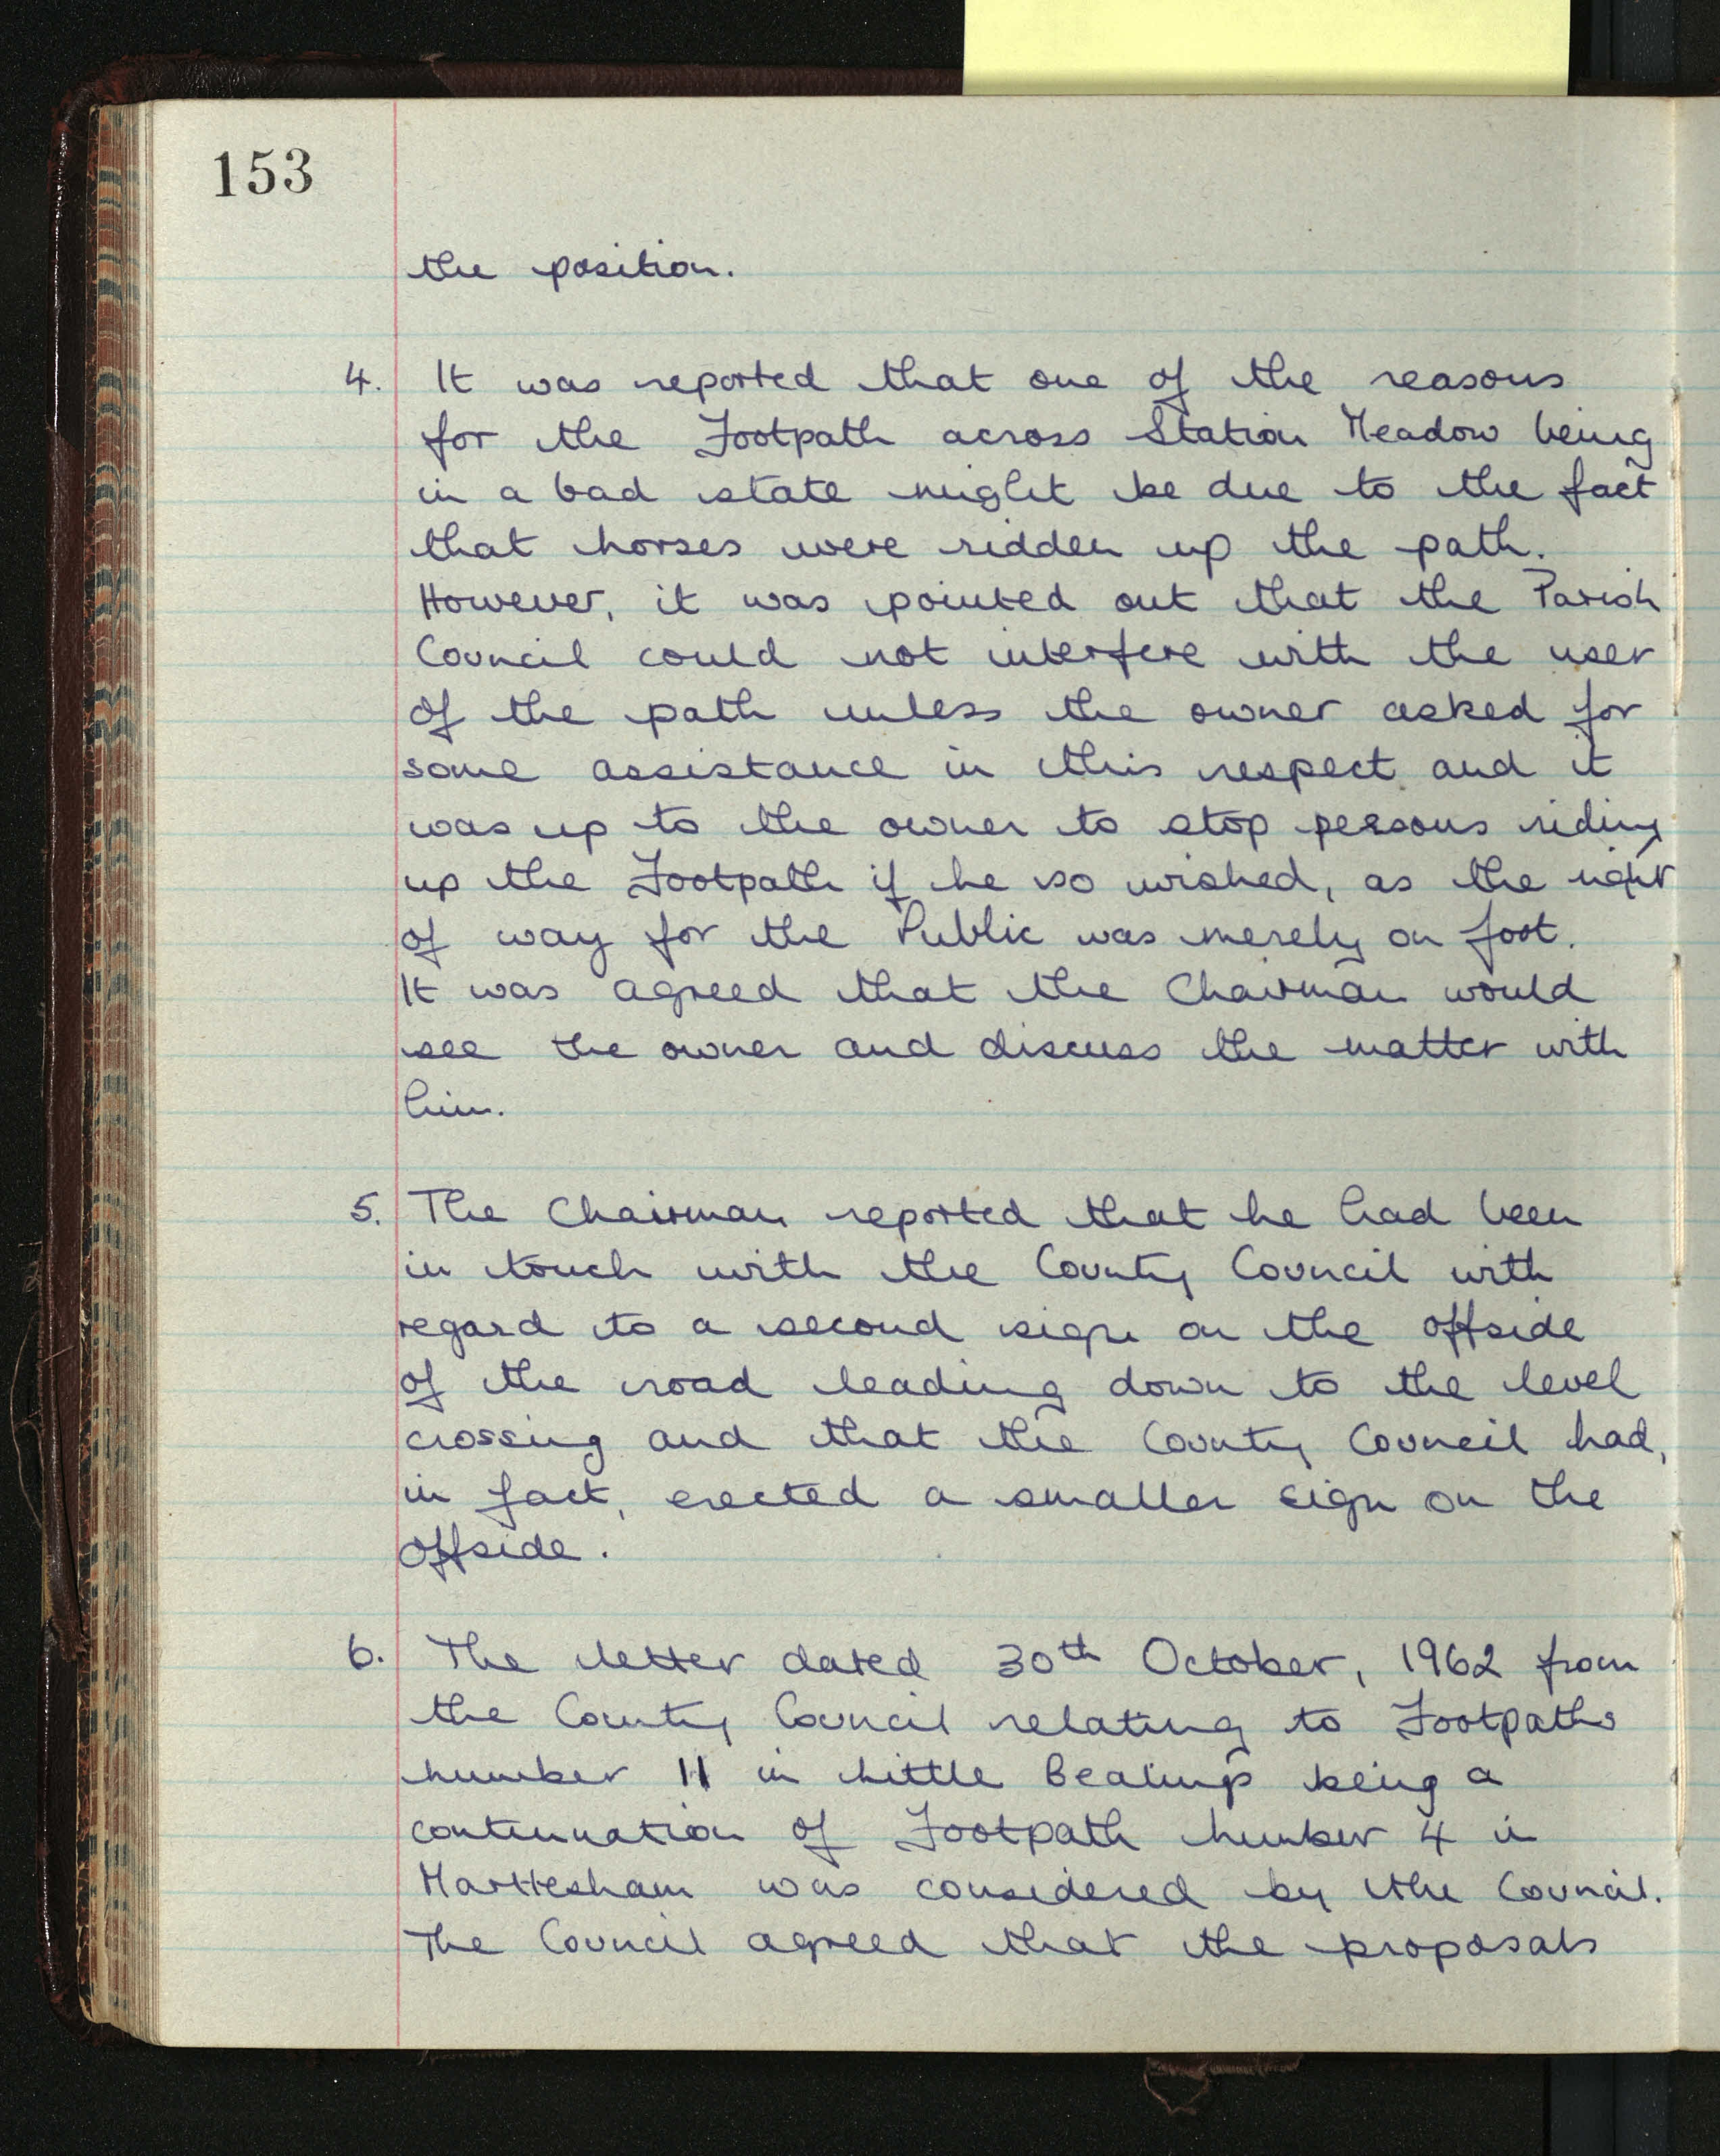 153
the position.
4. It was reported that one of the reasons
for the Footpath across Station Meadow being
in a bad state might be due to the fact
that horses were ridden up the path.
However, it was pointed out that the Parish
Council could not interfere with the user
of the path unless the owner asked for
some assistance in this respect and it
was up to the owner to stop persons riding
up the Footpath if he so wished, as the right
of way for the Public was merely on foot.
It was agreed that the Chairman would
see the owner and discuss the matter with
him.
5. The Chairman reported that he had been
in touch with the County Council with
regard to a second sign on the offside
of the road leading down to the level
crossing and that the County Council had,
in fact, erected a smaller sign on the
offside.
6. The letter dated 30th October, 1962 from
the County Council relating to Footpaths
number 11 in Little Bealings being a
continuation of Footpath number 4 in
Martlesham was considered by the Council.
The Council agreed that the proposals